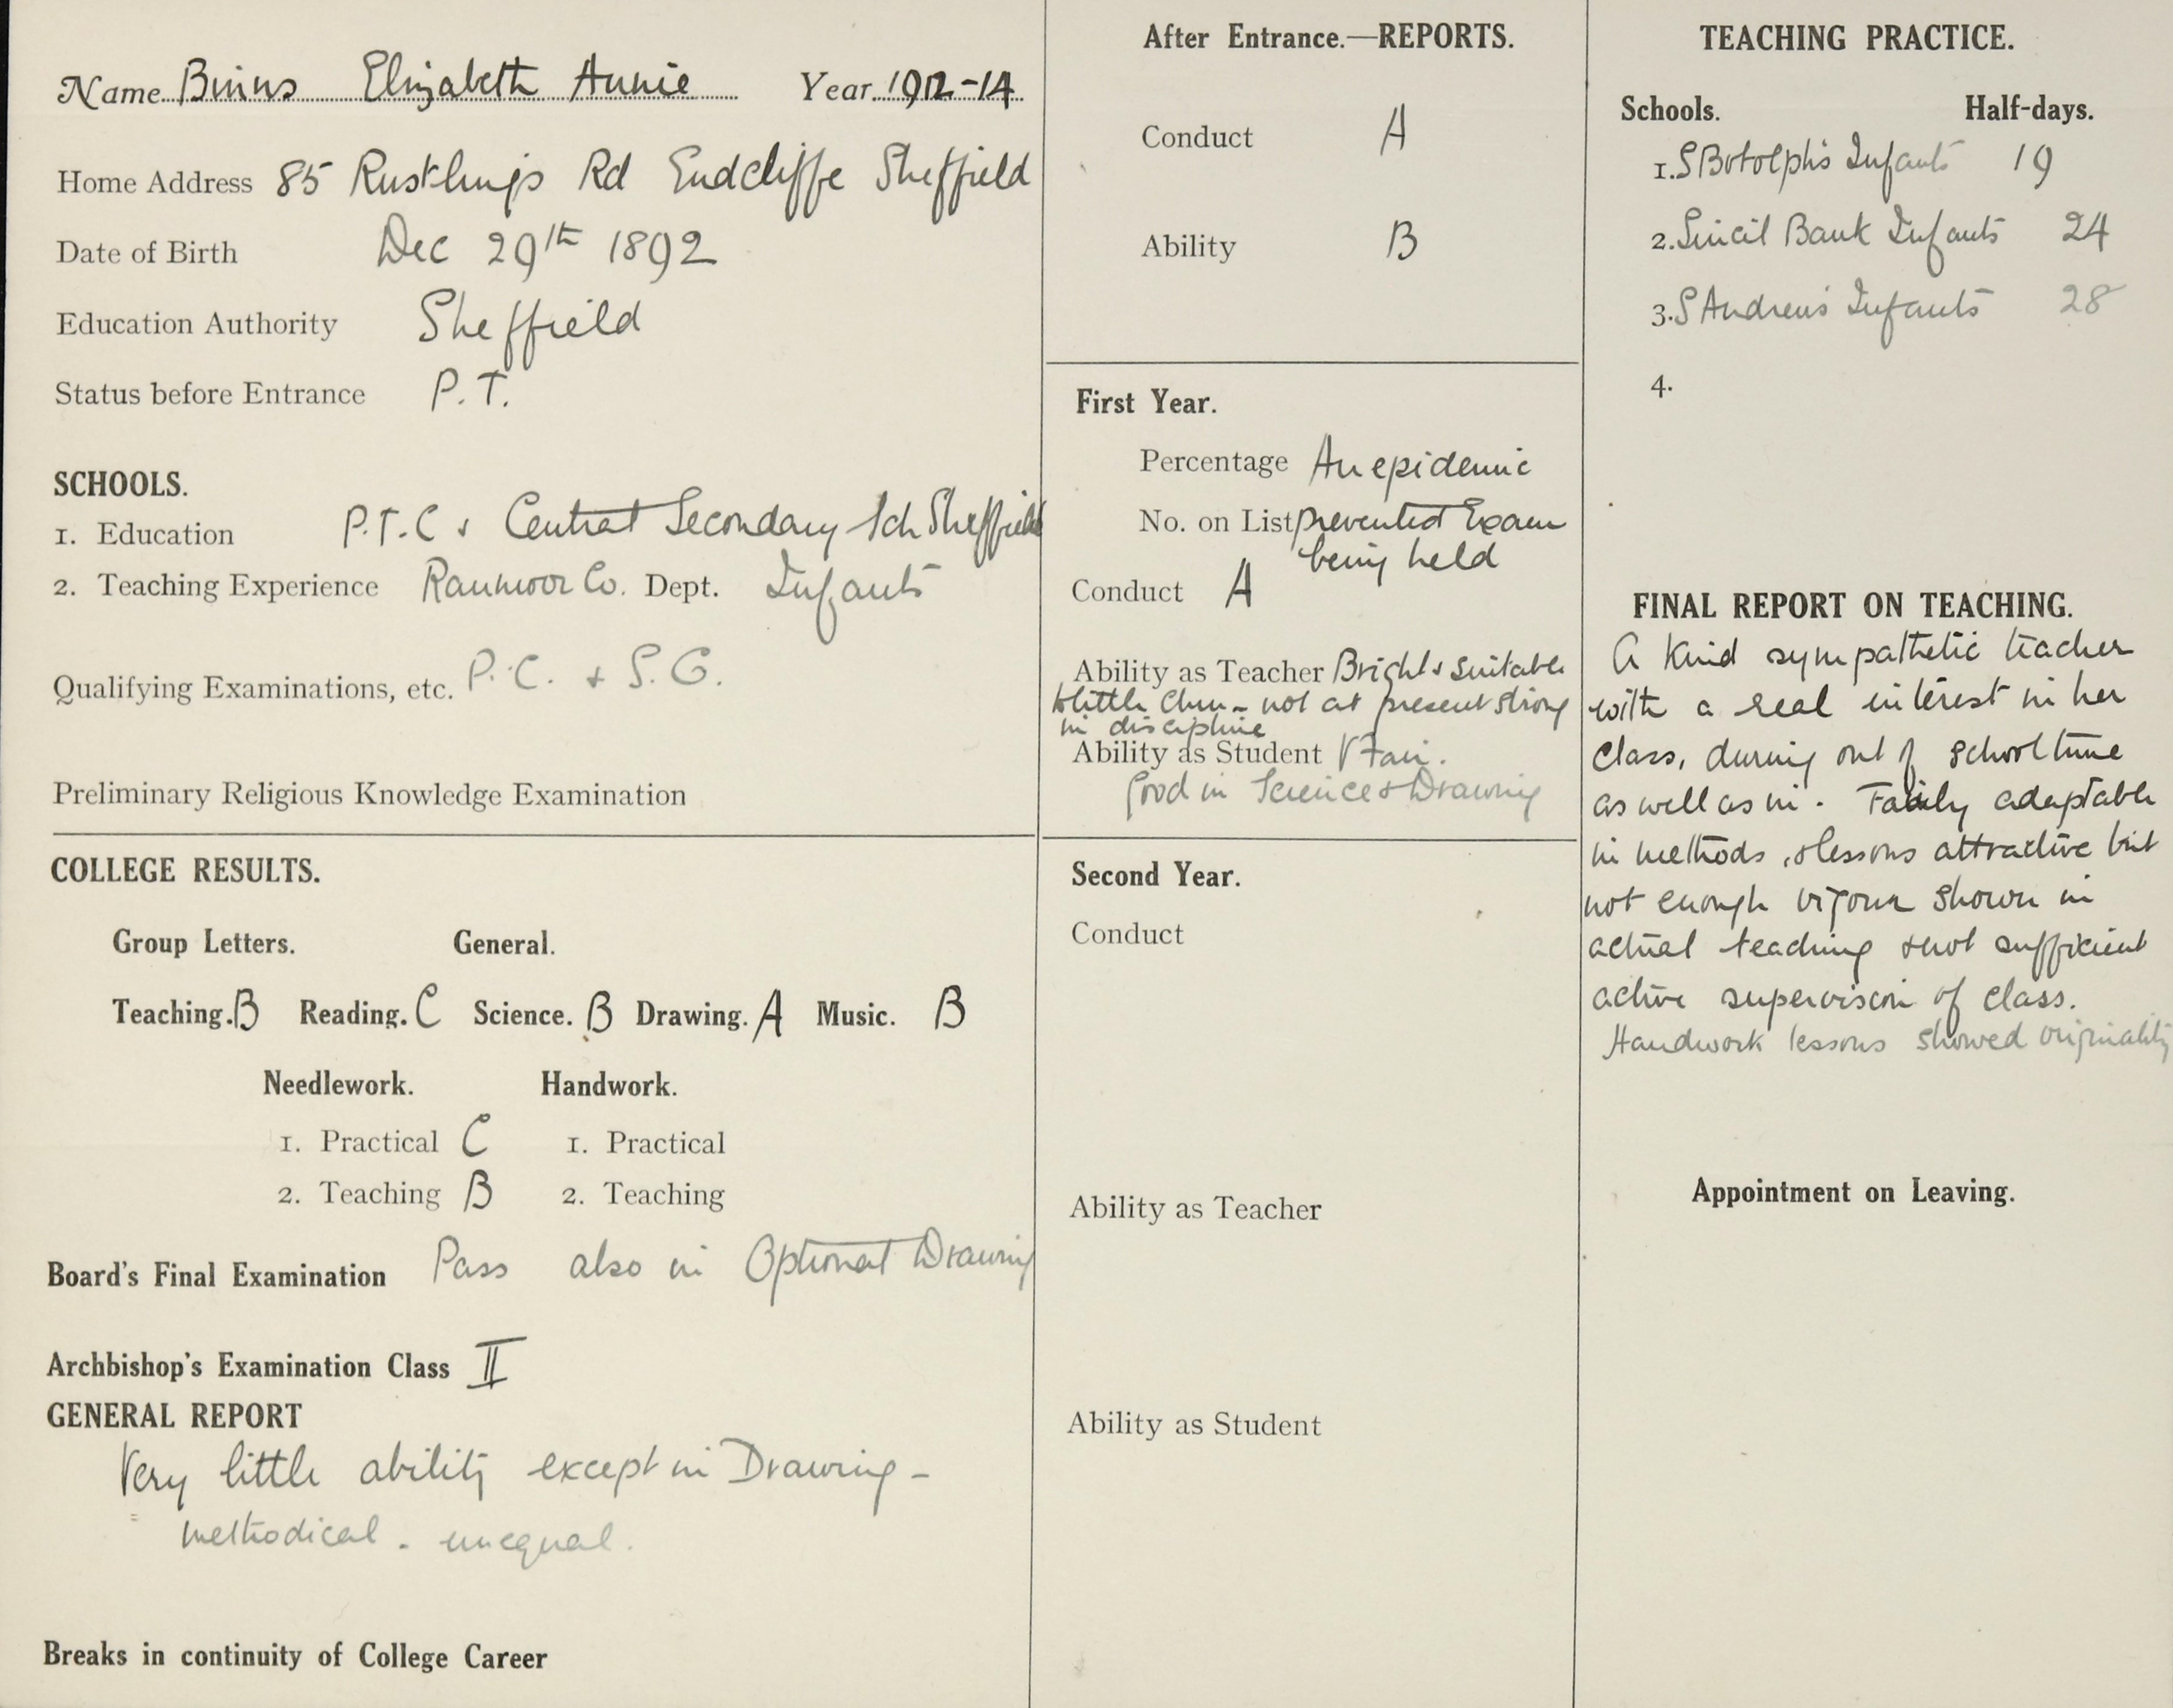 Name Binns Elizabeth Annie Year 1912-14
Home Address 85 Rustlings Rd Endcliffe Sheffield
Date of Birth Dec 29th 1892
Education Authority Sheffield
Status before Entrance P.T.
SCHOOLS.
1. Education P.T.C & Central Secondary Sch Sheffield
2. Teaching Experience Ranmoor Co. Dept. Infants
Qualifying Examinations, etc. P.C. & S.G.
Preliminary Religious Knowledge Examination
COLLEGE RESULTS.
Group Letters. General.
Teaching. B Reading. C Science. B Drawing. A Music. B
Needlework. Handwork.
1. Practical C 1. Practical
2. Teaching B 2. Teaching
Board's Final Examination Pass also in Optional Drawing
Archbishop's Examination Class II
GENERAL REPORT
Very little ability except in Drawing -
methodical - unequal.
Breaks in continuity of College Career
After Entrance.—REPORTS.
Conduct A
Ability B
First Year.
Percentage An epidemic
No. on List prevented Exam
being held
Conduct A
Ability as Teacher Bright & suitable
to little Chn - not at present strong
in discipline
Ability as Student V Fair.
Good in Science & Drawing
Second Year.
Conduct
Ability as Teacher
Ability as Student
TEACHING PRACTICE.
Schools. Half-days.
1. S Botolph's Infants 19
2. Sincil Bank Infants 24
3. S Andrew's Infants 28
4.
FINAL REPORT ON TEACHING.
A kind sympathetic teacher
with a real interest in her
class, during out of school time
as well as in. Fairly adaptable
in methods, & lessons attractive but
not enough vigour shown in
actual teaching & not sufficient
active supervision of class.
Handwork lessons showed originality
Appointment on Leaving.